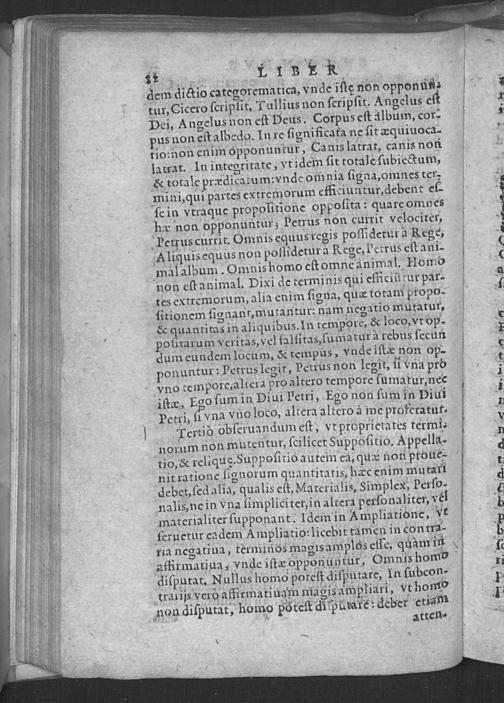 82 LIBER
dem dictio categorematica, vnde istę non opponun-
tur, Cicero scripsit, Tullius non scripsit. Angelus est
Dei, Angelus non est Deus. Corpus est album, cor-
pus non est albedo. In re significata ne sit æquiuoca-
tio: non enim opponuntur, Canis latrat, canis non
latrat. In integritate, vt idem sit totale subiectum,
& totale prædicatum: vnde omnia signa, omnes ter-
mini, qui partes extremorum efficiuntur, debent es-
se in vtraque propositione opposita: quare omnes
hæ non opponuntur; Petrus non currit velociter,
Petrus currit. Omnis equus regis possidetur à Rege,
Aliquis equus non possidetur à Rege, Petrus est ani-
mal album. Omnis homo est omne animal. Homo
non est animal. Dixi de terminis qui efficiũtur par-
tes extremorum, alia enim signa, quæ totam propo-
sitionem signant, mutantur: nam negatio mutatur,
& quantitas in aliquibus. In tempore, & loco, vt op-
positarum veritas, vel falsitas, sumatur à rebus secun
dum eundem locum, & tempus, vnde istæ non op-
ponuntur: Petrus legit, Petrus non legit, si vna pro
vno tempore, altera pro altero tempore sumatur, nec
istæ, Ego sum in Diui Petri, Ego non sum in Diui
Petri, si vna vno loco, altera altero à me proferatur.
Tertiò obseruandum est, vt proprietates termi-
norum non mutentur, scilicet Suppositio. Appella-
tio, & reliquę. Suppositio autem ea, quæ non proue-
nit ratione signorum quantitatis, hæc enim mutari
debet, sed alia, qualis est, Materialis, Simplex, Perso-
nalis, ne in vna simpliciter, in altera personaliter, vel
materialiter supponant. Idem in Ampliatione, vt
seruetur eadem Ampliatio: licebit tamen in contra-
ria negatiua, terminos magis amplos esse, quàm in
affirmatiua, vnde istæ opponuntur, Omnis homo
disputat, Nullus homo potest disputare, In subcon-
trarijs verò affirmatiuam magis ampliari, vt homo
non disputat, homo potest disputare: debet etiam
atten-